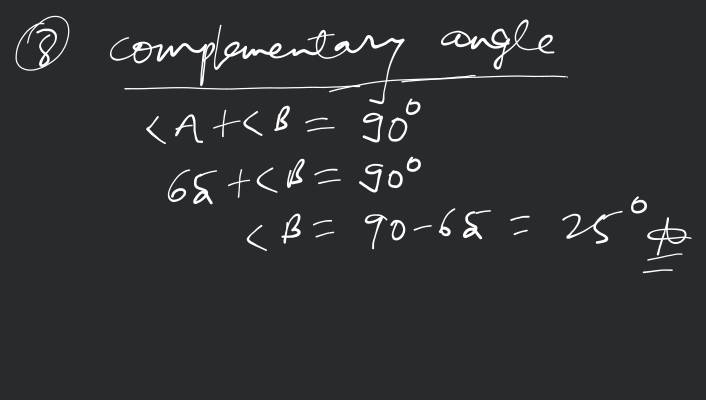 ⑧ complementary angle
<A+<B = 90°
65+<B = 90°
<B = 90-65 = 25°